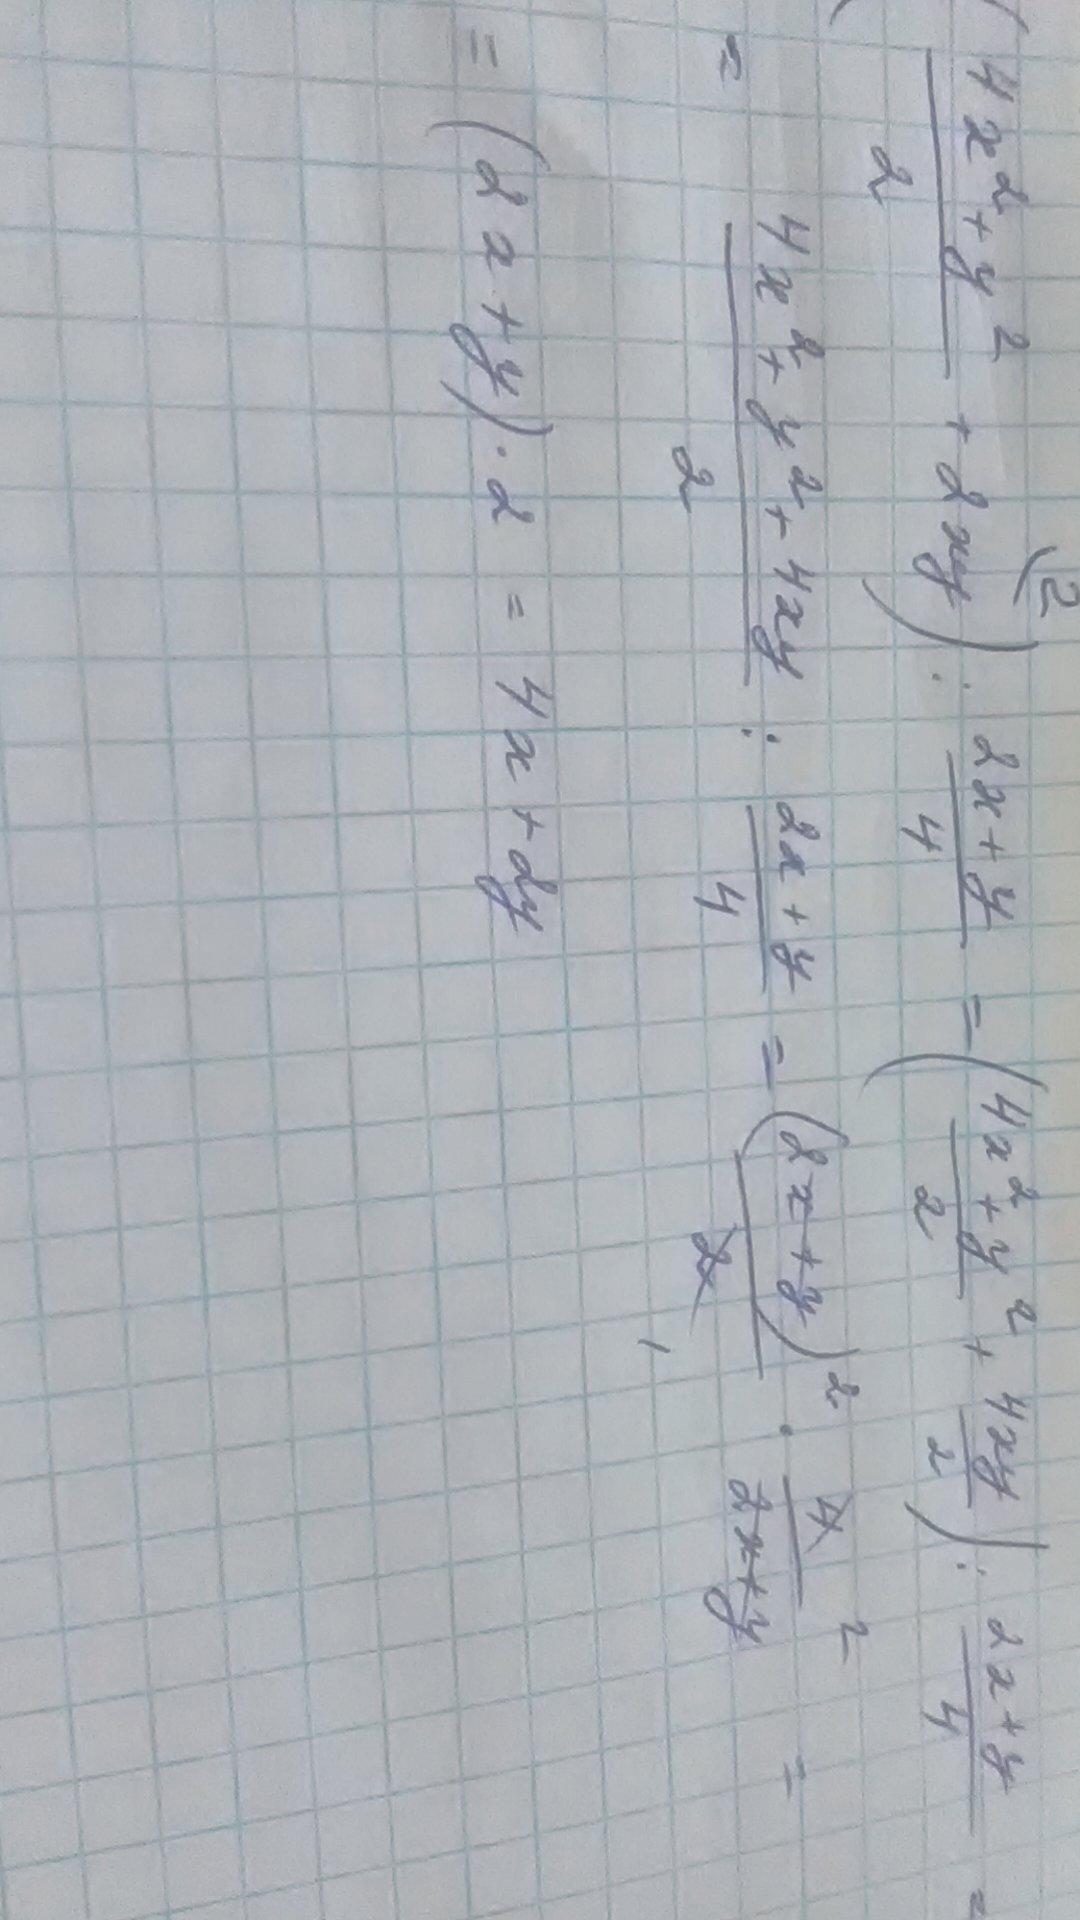 ( (4x² + y²)/2 + 2xy⁽² ) : (2x + y)/4 = ( (4x² + y²)/2 + 4xy/2 ) : (2x + y)/4 =
= (4x² + y² + 4xy)/2 : (2x + y)/4 = (2x + y)²/2 · 4/(2x + y) =
= (2x + y) · 2 = 4x + 2y